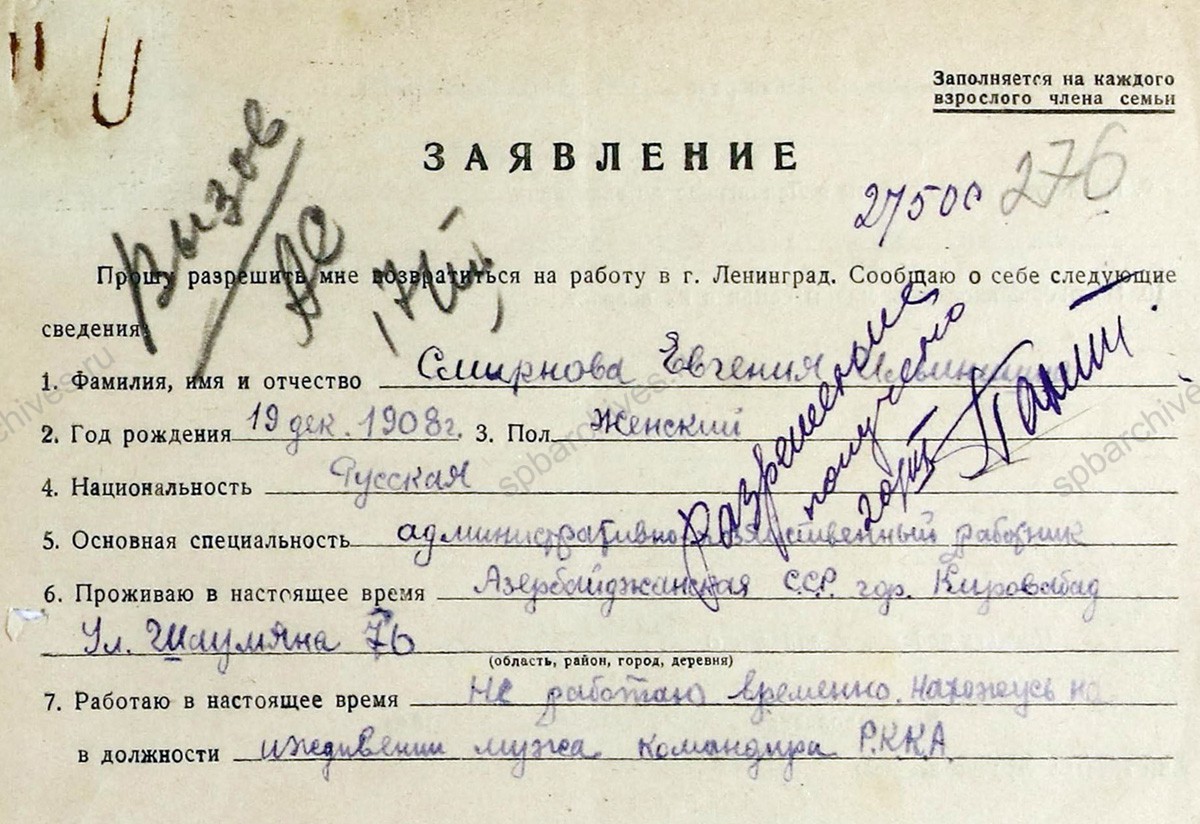 Заполняется на каждого
взрослого члена семьи
ЗАЯВЛЕНИЕ
276
27500
Вызов
Прошу разрешить мне возвратиться на работу в г. Ленинград. Сообщаю о себе следующие
сведения:
1. Фамилия, имя и отчество Смирнова Евгения
2. Год рождения 19 дек. 1908г. 3. Пол Женский
4. Национальность Русская
5. Основная специальность административно-хозяйственный работник
6. Проживаю в настоящее время Азербайджанская С.С.Р. гор. Кировабад
Ул. Шаумяна 76
(область, район, город, деревня)
7. Работаю в настоящее время Не работаю временно. Нахожусь на
в должности иждивении мужа командира Р.К.К.А
Разрешение
получено
spbarchives.ru
spbarchives.ru
spbarchives.ru